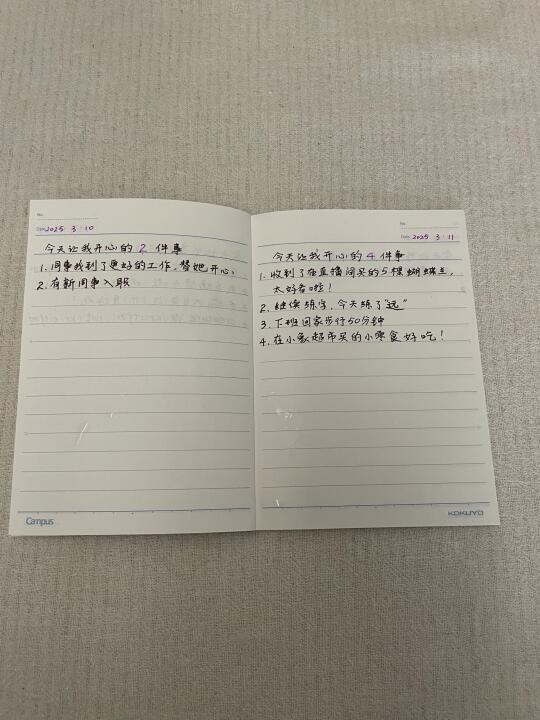 No.
Date 2025 · 3 · 10
今天让我开心的 2 件事
1. 同事找到了更好的工作，替她开心；
2. 有新同事入职
Campus
No.
Date 2025 · 3 · 11
今天让我开心的 4 件事
1. 收到了在直播间买的5棵蝴蝶兰，
太好看啦！
2. 继续练字，今天练了"远"
3. 下班回家步行50分钟
4. 在小象超市买的小零食好吃！
KOKUYO